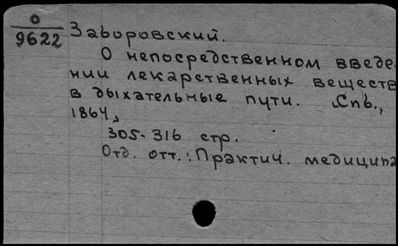 0
9622
Заборовский.
О непосредственном введе-
нии лекарственных веществ
в дыхательные пути. Спб.,
1864,
305-316 стр.
Отд. отт.: Практич. медицина